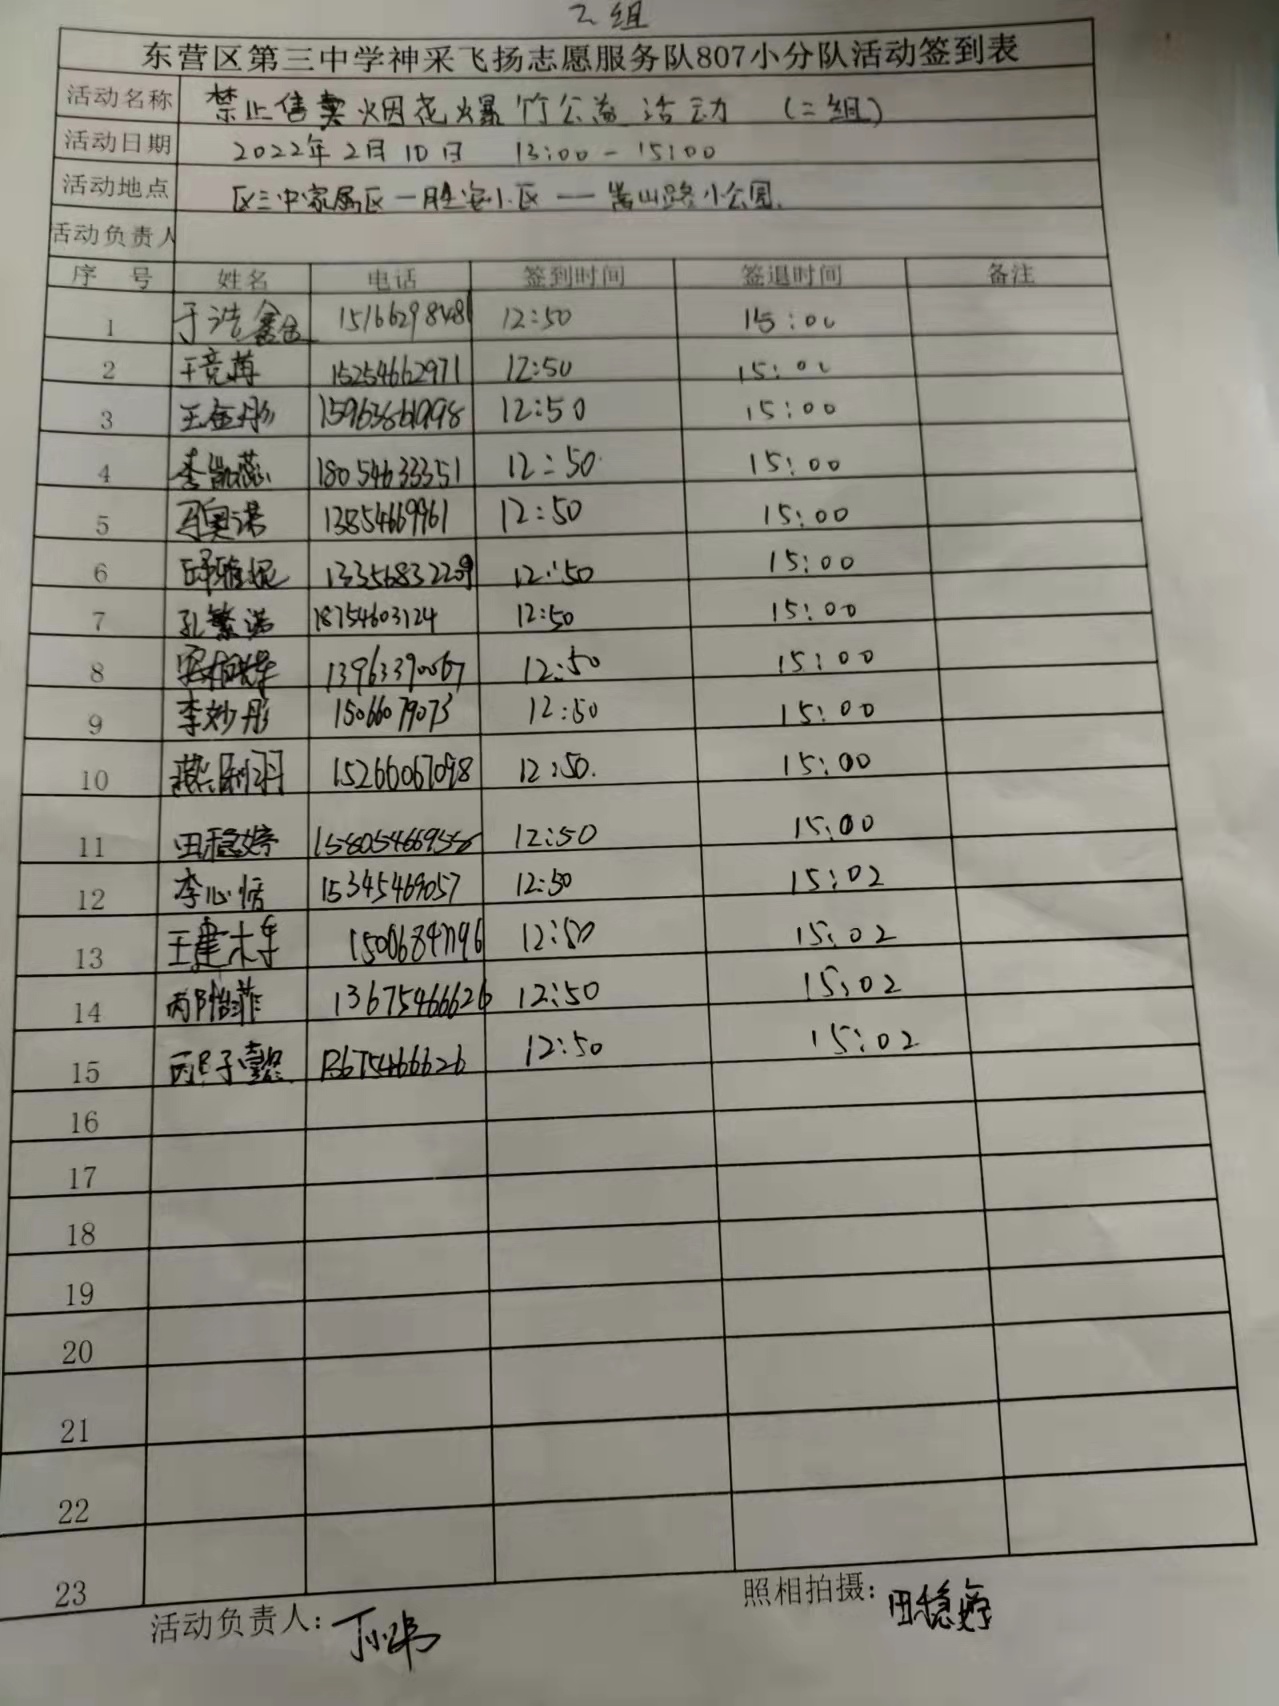 二组
东营区第三中学神采飞扬志愿服务队807小分队活动签到表
活动名称 禁止售卖烟花爆竹公益活动 (二组)
活动日期 2022年2月10日 13:00-15:00
活动地点 区三中家属区—胜安小区——嵩山路小公园.
活动负责人
序号 姓名 电话 签到时间 签退时间 备注
1 于浩鑫 12:50 15:00
2 15254662971 12:50 15:00
3 王金彤 12:50 15:00
4 李凯蕊 18054633351 12:50 15:00
5 冯奥诺 13854669961 12:50 15:00
6 12:50 15:00
7 孔繁诺 18754603124 12:50 15:00
8 13963390067 12:50 15:00
9 李妙彤 15066079073 12:50 15:00
10 15266067098 12:50. 15:00
11 田稳婷 12:50 15:00
12 李心恬 15345469057 12:50 15:02
13 王建 12:50 15:02
14 13675466626 12:50 15:02
15 13675466626 12:50 15:02
16
17
18
19
20
21
22
23
活动负责人: 照相拍摄: 田稳婷